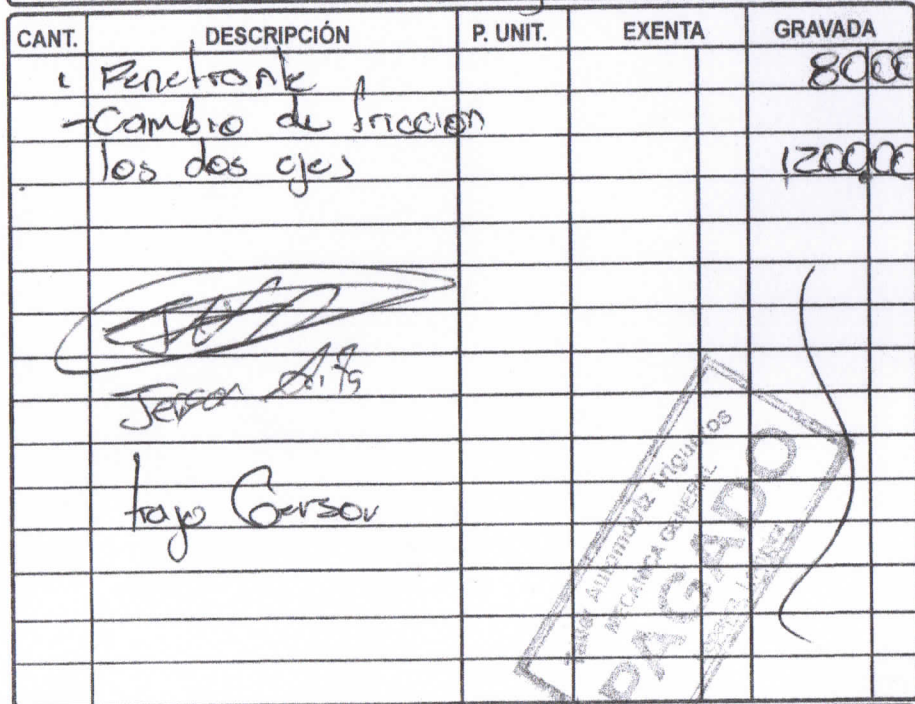 CANT. DESCRIPCIÓN P. UNIT. EXENTA GRAVADA
1 Penetrante 80 00
- Cambio de friccion
los dos ejes 1200.00
Jerson
trajo Gerson
Taller Automotriz Trigueros
MECANICA GENERAL
PAGADO